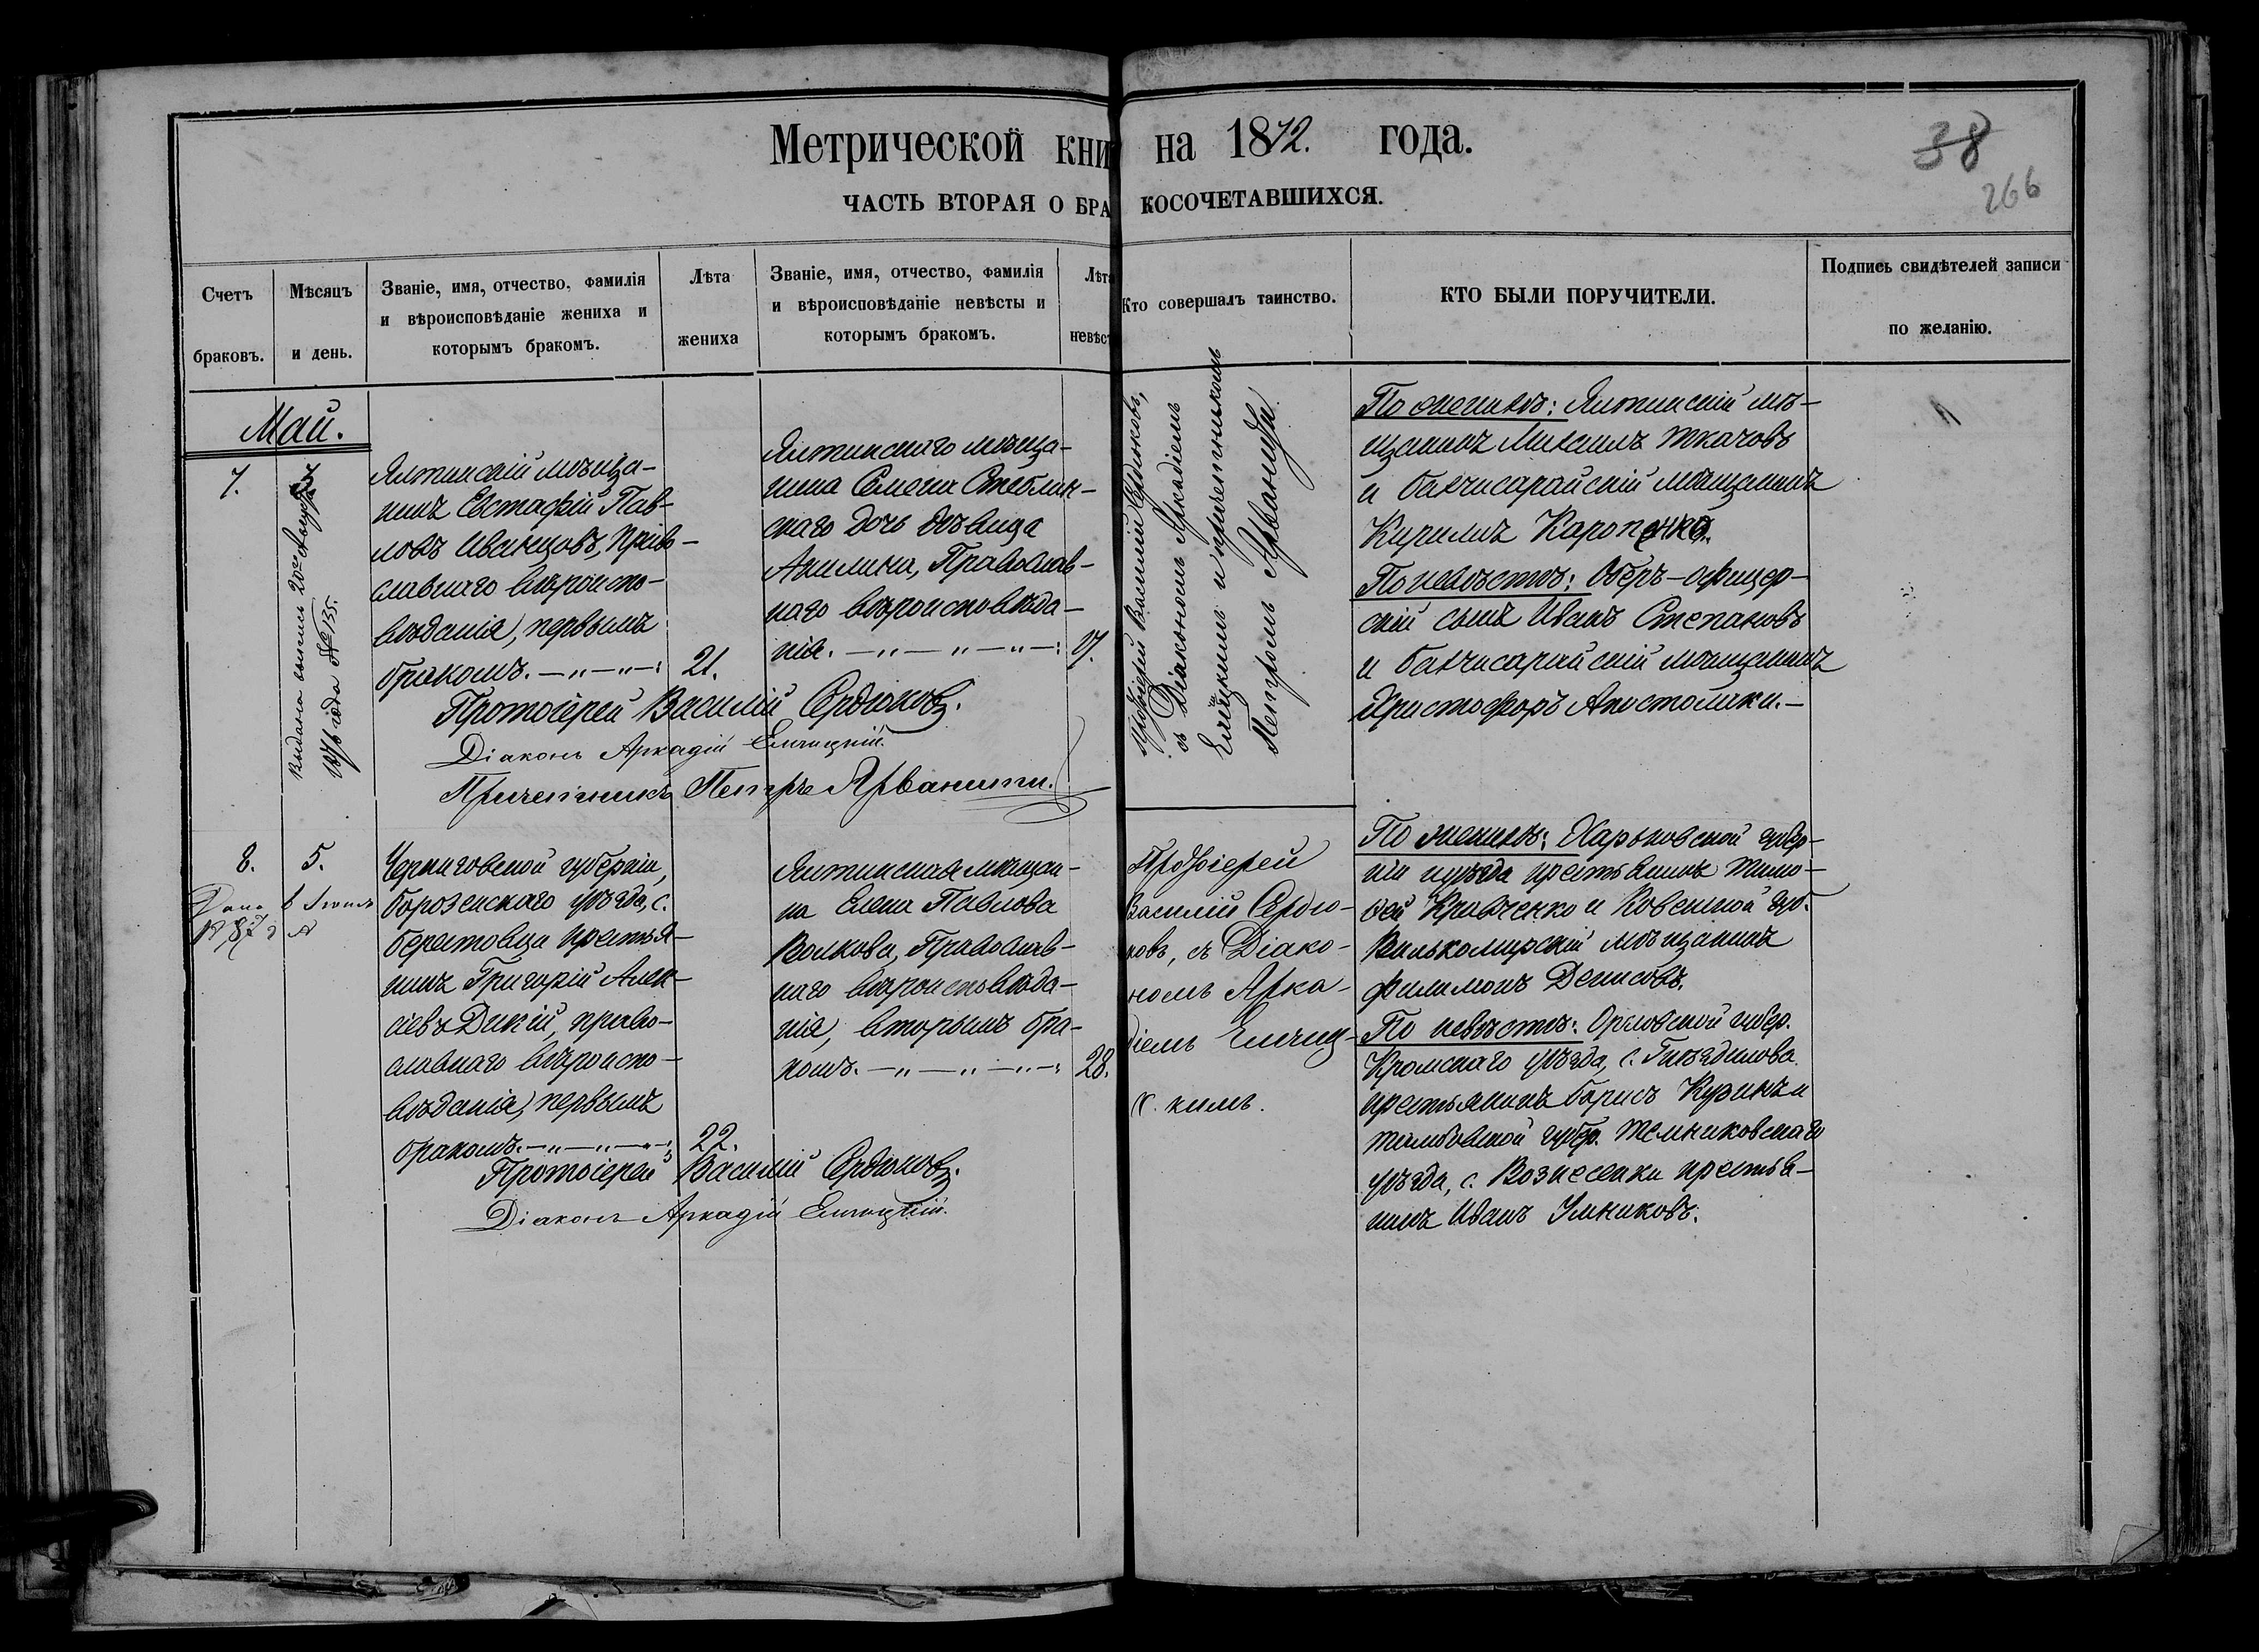 Метрической кни на 1872. года.
38
266
ЧАСТЬ ВТОРАЯ О БРА КОСОЧЕТАВШИХСЯ.
Счетъ
браковъ.
Мѣсяцъ
и день.
Званіе, имя, отчество, фамилія
и вѣроисповѣданіе жениха и
которымъ бракомъ.
Лѣта
жениха
Званіе, имя, отчество, фамилія
и вѣроисповѣданіе невѣсты и
которымъ бракомъ.
Лѣта
невѣс
Кто совершалъ таинство.
КТО БЫЛИ ПОРУЧИТЕЛИ.
Подпись свидѣтелей записи
по желанію.
Май.
7.
Выдана выпись 20го Августа
1876 года № 135.
Ялтинскій мѣща-
нинъ Евстафій Пав-
ловъ Иванцовъ, Право-
славнаго вѣроиспо-
вѣданія, первымъ
бракомъ. —„—„—:
21.
Ялтинскаго мѣща-
нина Семена Стеблин-
скаго дочь дѣвица
Акилина, Православ-
наго вѣроисповѣда-
нія. —„—„—„—:
17.
Протоіерей Василій Сердюковъ,
съ Діакономъ Аркадіемъ
Елчицкимъ и причетникомъ
Петромъ Арванити
По женихѣ: Ялтинскій мѣ-
щанинъ Михаилъ Ткачовъ
и бахчисарайскій мѣщанинъ
Кирилъ Каропенко.
По невѣстѣ: Оберъ-офицер-
скій сынъ Иванъ Степановъ
и бахчисарайскій мѣщанинъ
Христофоръ Апостолики.—
Протоіерей Василій Сердюковъ.
Діаконъ Аркадій Елчицкій.
Причетникъ Петръ Арванити.
8.
5.
Дана в Июнѣ
Черниговской губерніи,
борозенскаго уѣзда, с.
берестовца крестья-
нинъ Григорій Алек-
сіевъ Дикій, право-
славнаго вѣроиспо-
вѣданія, первымъ
бракомъ.—„—„—„—:
22.
Ялтинская мѣщан-
ка Елена Павлова
Волкова, Православ-
наго вѣроисповѣда-
нія, вторымъ бра-
комъ. —„—„—„—:
28.
Протоіерей
Василій Сердю-
ковъ, съ Діако-
номъ Арка-
діемъ Елчиц-
кимъ.
По женихѣ: Харьковской губер-
ніи и уѣзда крестьянинъ Тимо-
фей Кравченко и Ковенской губ.
Вилькомирскій мѣщанинъ
Филимонъ Денисовъ.
По невѣстѣ: Орловской губер.
Кромскаго уѣзда, с. Гнѣздилова
крестьянинъ Борисъ Куринъ и
тамбовской губер. Темниковскаго
уѣзда, с. Вознесенки крестья-
нинъ Иванъ Умниковъ.
Протоіерей Василій Сердюковъ.
Діаконъ Аркадій Елчицкій.